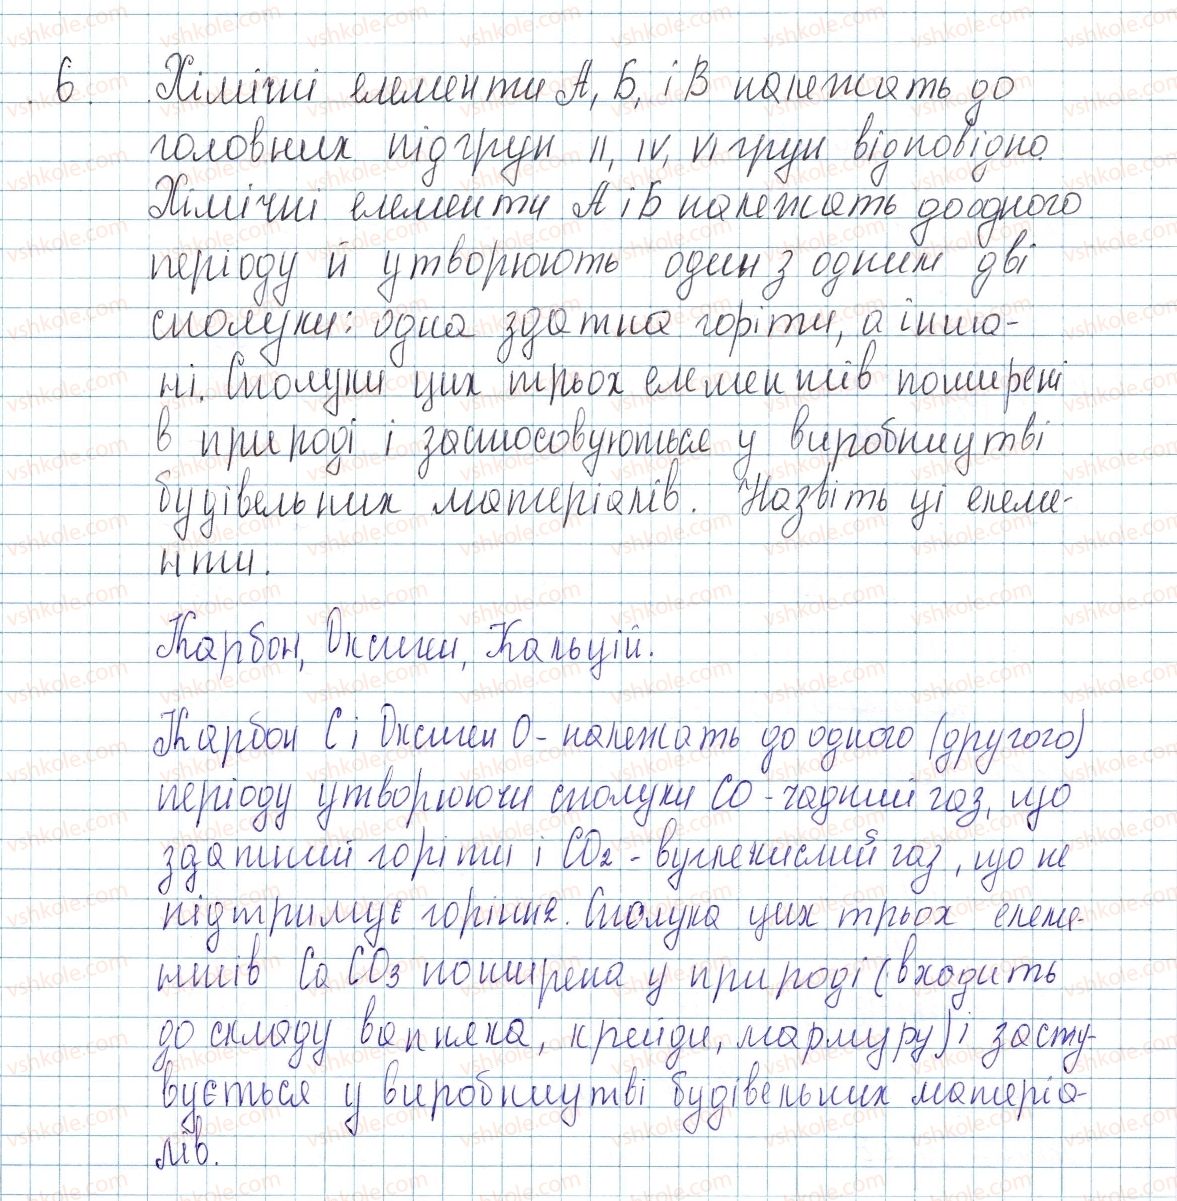 6. Хімічні елементи А, Б, і В належать до
головних підгруп II, IV, VI груп відповідно.
Хімічні елементи А і Б належать до одного
періоду й утворюють один з одним дві
сполуки: одна здатна горіти, а інша-
ні. Сполуки цих трьох елементів поширені
в природі і застосовуються у виробництві
будівельних матеріалів. Назвіть ці елеме-
нти.
Карбон, Оксиген, Кальцій.
Карбон C і Оксиген O - належать до одного (другого)
періоду утворюючи сполуки CO - чадний газ, що
здатний горіти і CO2 - вуглекислий газ, що не
підтримує горіння. Сполука цих трьох елеме-
нтів CaCO3 поширена у природі (входить
до складу вапняка, крейди, мармуру) і засту-
вується у виробництві будівельних матеріа-
лів.